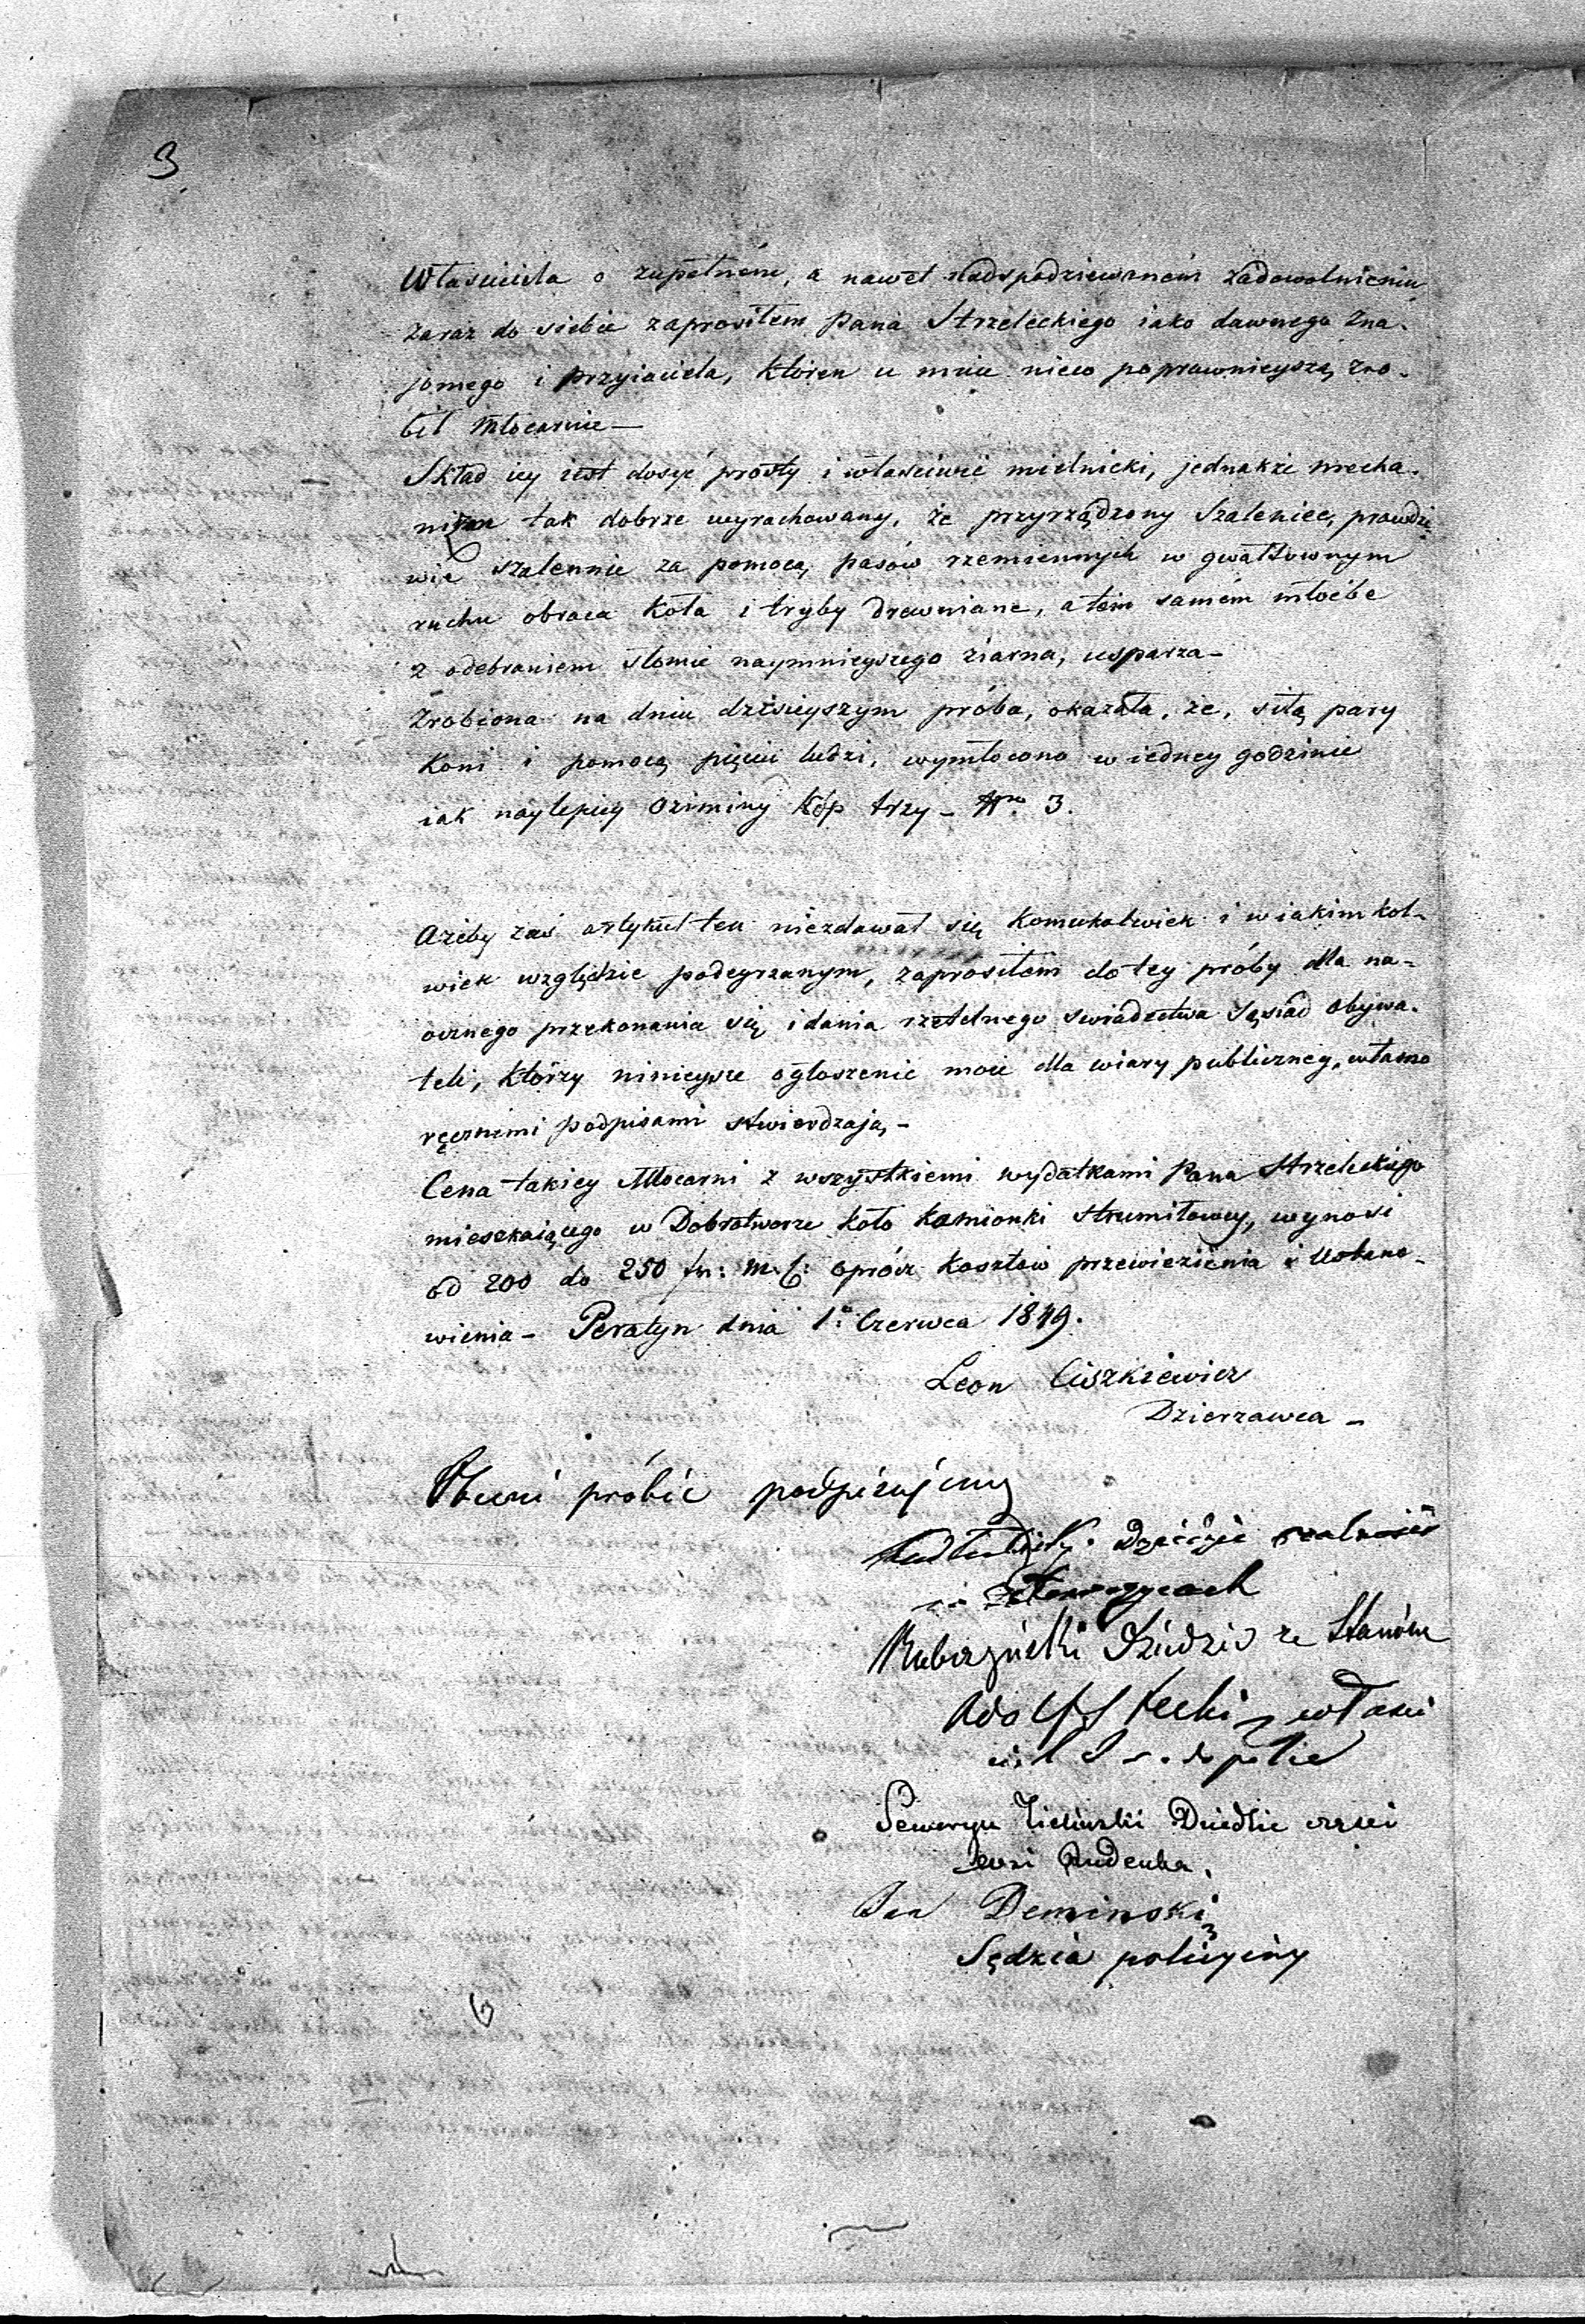 3
Właściciela o zupełném, a nawet nadspodziewaném zadowolnieniu
zaraz do siebie zaprosiłem Pana Strzeleckiego iako dawnego zna-
jomego i przyiaciela, któren u mnie nieco poprawnieyszą zro-
bił Młocarnie —
Skład iey iest dosyć prosty i właściwie mielnicki, jednakże mecha-
nizm tak dobrze wyrachowany, że przyrządzony Szaleniec, prawdzi
wie szalennie za pomocą pasów rzemiennych w gwałtownym
ruchu obraca koła i tryby drewniane, a tém samém młócbe
z odebraniem słomie naymnieyszego ziarna, usparza —
Zrobiona na dniu dzisieyszym próba, okazała, że, siłą pary
koni i pomocą pięciu ludzi, wymłocono w iedney godzinie
iak naylepiey Oziminy kóp trzy — Nro. 3.
Ażeby zaś artykuł ten niezdawał się komukolwiek i w iakimkol-
wiek względzie podeyrzanym, zaprosiłem do tey próby dla na-
ocznego przekonania się i dania rzetelnego świadectwa Sąsiad Obywa-
teli, którzy ninieysze ogłoszenie moie dla wiary publiczney, własno
ręcznemi podpisami stwierdzają —
Cena takiey Młocarni z wszystkiemi wydatkami Pana Strzeleckiego
mieszkaiącego w Dobrotworze koło Kamionki Strumiłowey, wynosi
od 200 do 250 fr: m. C: oprócz kosztów przewiezienia i ustano-
wienia — Peratyn dnia 1. Czerwca 1849.
Leon Ciszkiewicz
Dzierzawca —
Obecni próbie podpisujemy
Dziedzic
Dziedzic ze Stanina
Adolf
Seweryn Zieliński Dziedzic części
wsi Rudenka.
Jan Deminski
Sędzia policyiny